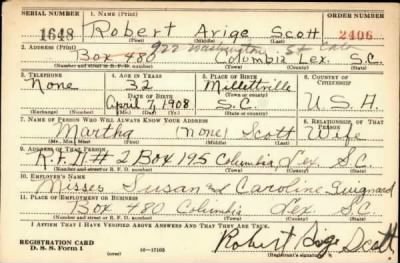 SERIAL NUMBER 1. NAME (Print) ORDER NUMBER
1648 Robert Arige Scott 2406
(First) (Middle) (Last)
2. ADDRESS (Print) 922 Washington St Cola
Box 480 Columbia Lex. S.C.
(Number and street or R. F. D. number) (Town) (County) (State)
3. TELEPHONE 4. AGE IN YEARS 5. PLACE OF BIRTH 6. COUNTRY OF CITIZENSHIP
None 32 Millettville
DATE OF BIRTH (Town or county)
April 7, 1908 S.C. U.S.A.
(Exchange) (Number) (Mo.) (Day) (Yr.) (State or country)
7. NAME OF PERSON WHO WILL ALWAYS KNOW YOUR ADDRESS 8. RELATIONSHIP OF THAT PERSON
Martha None Scott Wife
(Mr., Mrs., Miss) (First) (Middle) (Last)
9. ADDRESS OF THAT PERSON
R.F.D.# 2 Box 195 Columbia Lex S.C.
(Number and street or R. F. D. number) (Town) (County) (State)
10. EMPLOYER'S NAME
Misses Susan and Caroline Guignard
11. PLACE OF EMPLOYMENT OR BUSINESS
Box 480 Columbia Lex. S.C.
(Number and street or R. F. D. number) (Town) (County) (State)
I AFFIRM THAT I HAVE VERIFIED ABOVE ANSWERS AND THAT THEY ARE TRUE.
REGISTRATION CARD
D. S. S. Form 1 16—17105 Robert Arige Scott
(over) (Registrant's signature)